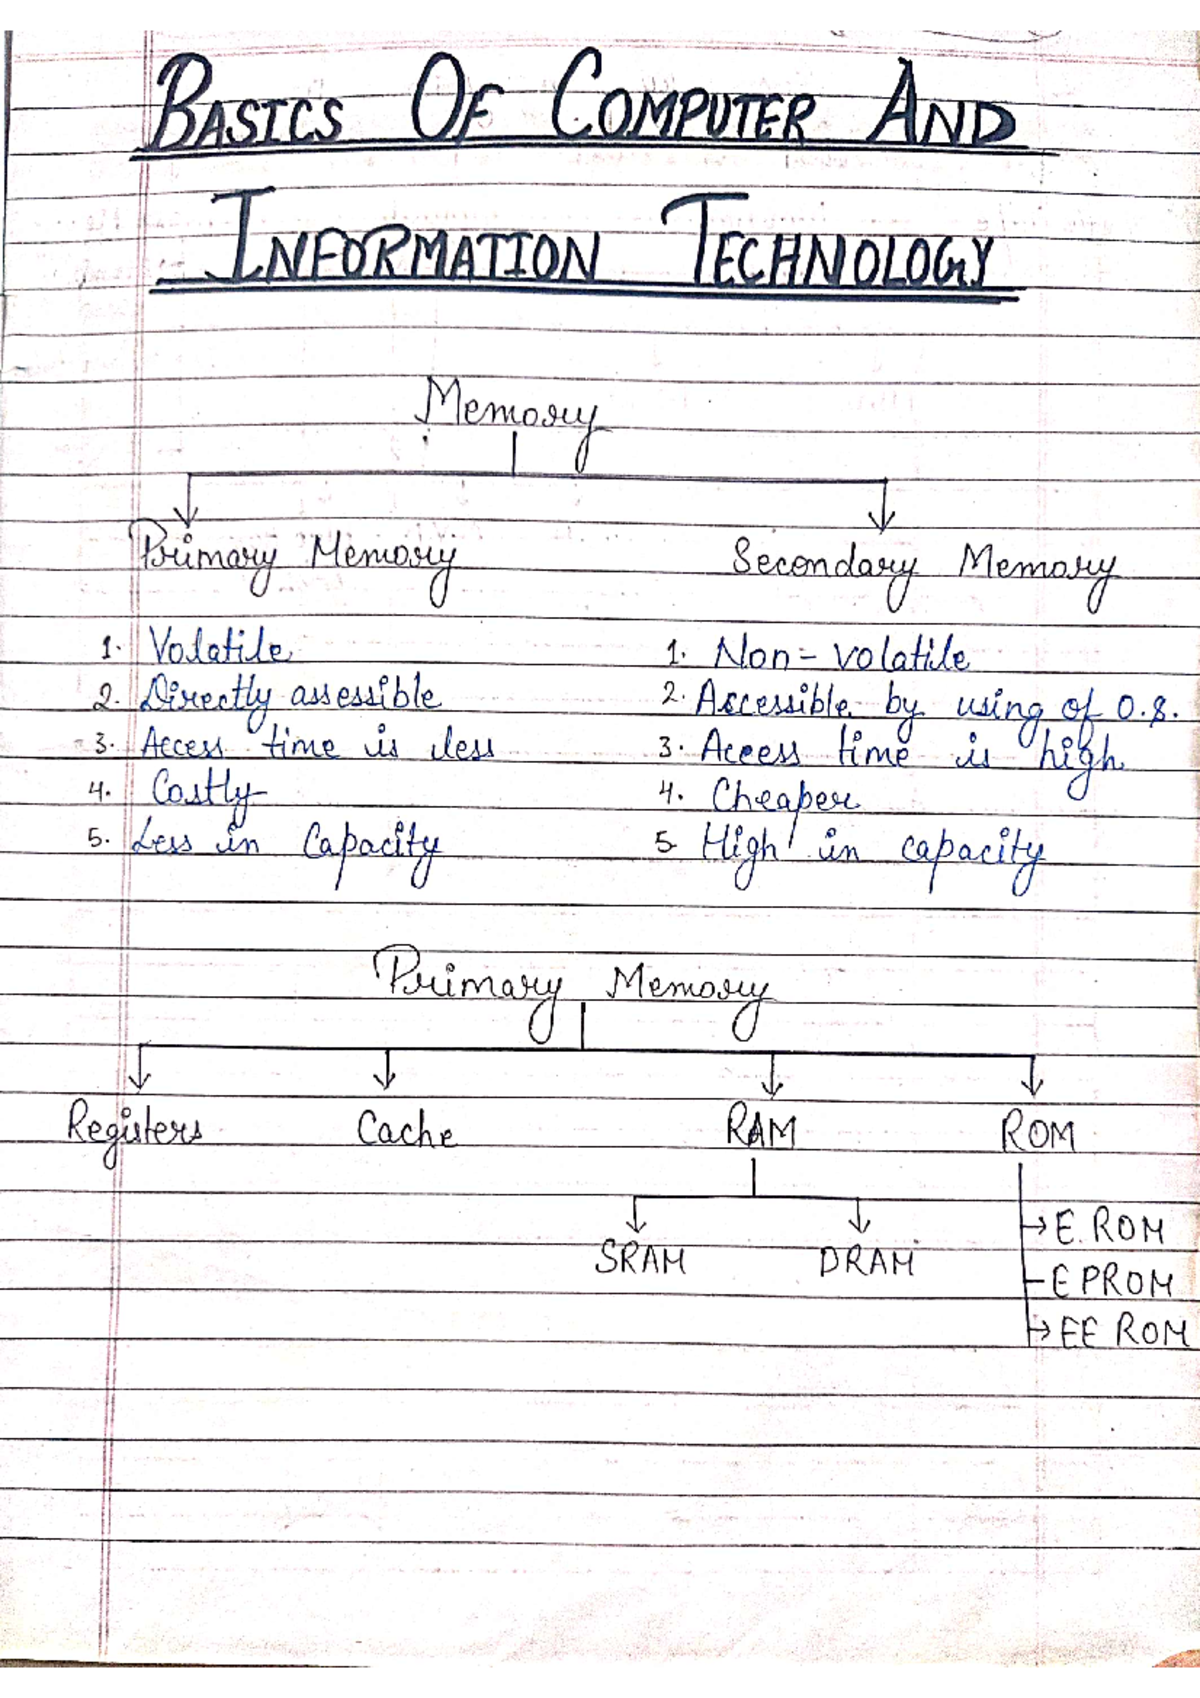 BASICS OF COMPUTER AND
INFORMATION TECHNOLOGY
Memory
Primary Memory
Secondary Memory
1. Volatile
2. Directly assessible
3. Access time is less
4. Costly
5. Less in Capacity
1. Non-volatile
2. Accessible by using of O.S.
3. Access time is high
4. Cheaper
5 High in capacity
Primary Memory
Registers Cache RAM ROM
SRAM DRAM
E.ROM
EPROM
EEROM